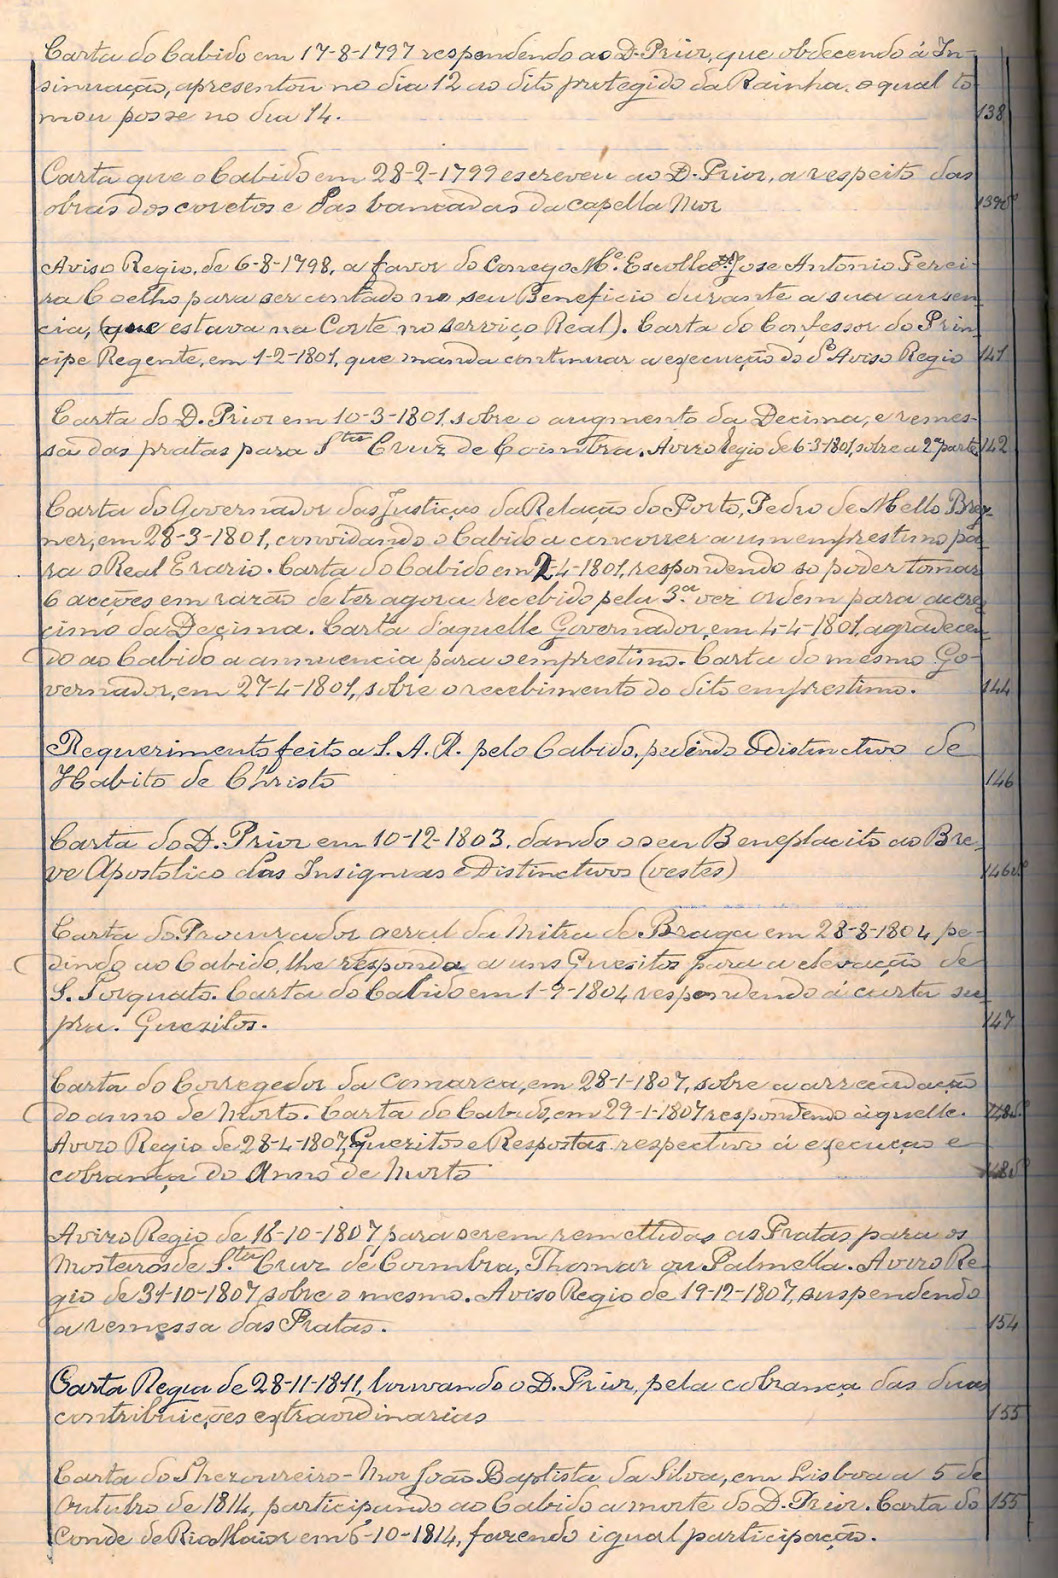 Carta do Cabido em 17-8-1797 respondendo ao D. Prior, que obdecendo á In-
sinuação, apresentou no dia 12 ao dito protegido da Rainha, o qual to-
mou posse no dia 14. 138
Carta que o Cabido em 28-2-1799 escreveu ao D. Prior, a respeito das
obras dos coretos e das bancadas da capella Mor
Aviso Regio, de 6-8-1798, a favor do Conego Me. Escolla Jose Antonio Perei-
ra Coelho para ser contado no seu Beneficio durante a sua ausen
cia, (que estava na Corte no serviço Real). Carta do Confessor do Prin
cipe Regente, em 1-2-1801, que manda continuar a execução do do Aviso Regio 141
Carta do D. Prior em 10-3-1801, sobre o augmento da Decima, e remes-
sa das pratas para Sta Cruz de Coimbra. Aviso Regio de 6-3-1801, sobre a 2ª parte 142
Carta do Governador das Justiças da Relação do Porto, Pedro de Mello Brey-
ner, em 28-3-1801, convidando o Cabido a concorrer a um emprestimo pa
ra o Real Erario. Carta do Cabido em 2-4-1801, respondendo so poder tomar
6 acções em razão de ter agora recebido pela 3.ª vez ordem para acres
cimo da Decima. Carta d'aquelle Governador, em 4-4-1801, agradecen
do ao Cabido a annuencia para o emprestimo. Carta do mesmo Go-
vernador, em 27-4-1801, sobre o recebimento do dito emprestimo. 144
Requerimento feito a S. A. R. pelo Cabido, pedindo o Distinctivo de
Habito de Christo 146
Carta do D. Prior em 10-12-1803, dando o seu Beneplacito ao Bre-
ve Apostolico das Insignias e Distinctivos (vestes) 146vº
Carta do Procurador geral da Mitra de Braga em 28-8-1804 pe-
dindo ao Cabido, lhe responda a uns Quesitos para a elevação de
S. Torquato. Carta do Cabido em 1-9-1804 respondendo á carta su
pra. Quesitos. 147
Carta do Corregedor da Comarca, em 28-1-1807, sobre a arrecadação
do anno de Morto. Carta do Cabido, em 29-1-1807 respondendo áquelle.
Aviso Regio de 28-4-1807, Quesitos e Respostas respectivo á execução e
cobrança do Anno de Morto
Aviso Regio de 18-10-1807 para serem remettidas as Pratas para os
Mosteiros de S.ta Cruz de Coimbra, Thomar ou Palmella. Aviso Re
gio de 31-10-1807 sobre o mesmo. Aviso Regio de 19-12-1807, suspendendo
a remessa das Pratas. 154
Carta Regia de 28-11-1811, louvando o D. Prior, pela cobrança das duas
contribuições extraordinarias 155
Carta do Thezoureiro-Mor João Baptista da Silva, em Lisboa a 5 de
Outubro de 1814, participando ao Cabido a morte do D. Prior. Carta do 155
Conde de Rio Maior em 6-10-1814, fazendo igual participação.